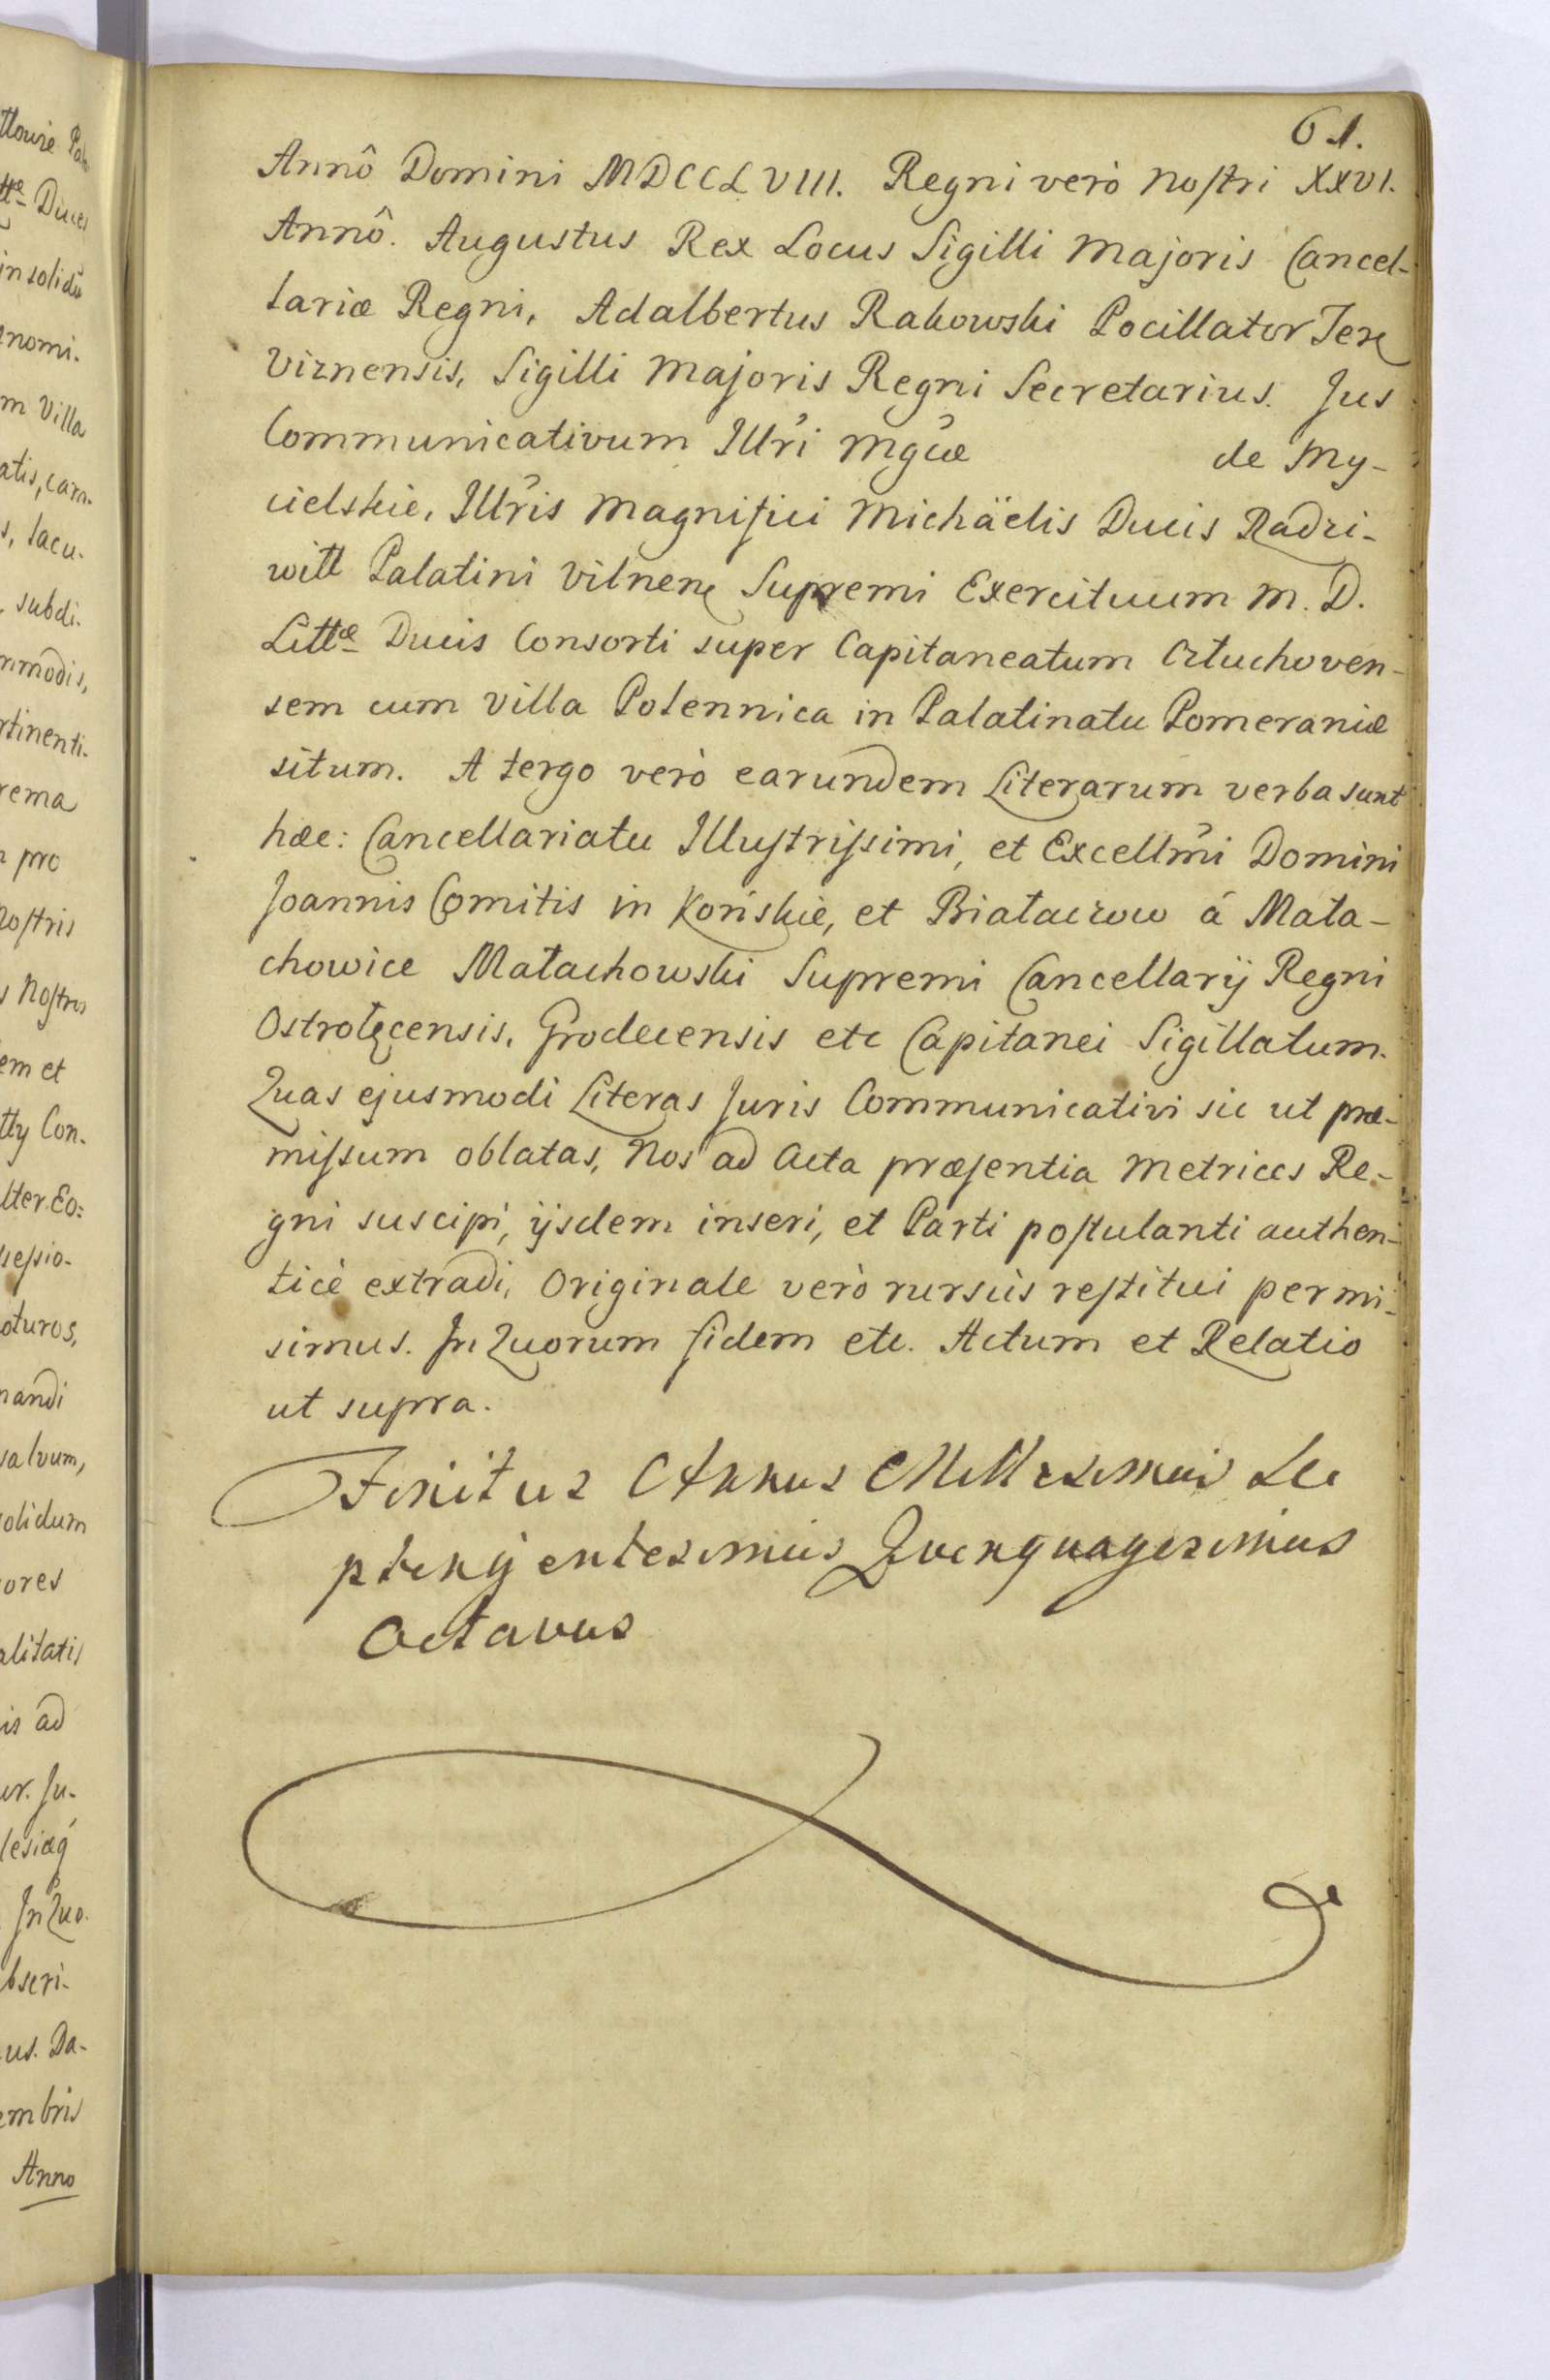 61.
Annô Domini MDCCLVIII. Regni verò nostri XXVI.
Annô. Augustus Rex Locus Sigilli Majoris Cancel-
lariæ Regni, Adalbertus Rakowski Pocillator Terę
Viznensis, Sigilli Majoris Regni Secretarius. Jus
Communicativum Illri Mgcæ de My-
cielskie, Illris Magnifici Michäelis Ducis Radzi-
wiłł Palatini Vilnenę Supremi Exercituum M. D.
Littæ Ducis Consorti super Capitaneatum Człuchoven-
sem cum Villa Polennica in Palatinatu Pomeraniæ
situm. A tergo verò earundem Literarum verba sunt
hæc: Cancellariatu Illustrissimi, et Excellmi Domini
Joannis Comitis in Końskie, et Białaczow á Mała-
chowice Małachowski Supremi Cancellarij Regni
Ostrołęcensis, Grodecensis etc Capitanei Sigillatum.
Quas ejusmodi Literas Juris Communicativi sic ut præ-
missum oblatas, Nos ad Acta præsentia Metrices Re-
gni suscipi, ijsdem inseri, et Parti postulanti authen-
ticè extradi, Originale verò rursùs restitui permi-
simus. In Quorum fidem etc. Actum et Relatio
ut supra.
Finitus Annus Millesimus Se
ptingentesimus Quinquagesimus
Octavus
ttę Duces
in solidũ
m Villa
, lacu-
subdi-
mmodis,
rtinenti-
rema
pro
nostris
s Nostris
em et
tty Con-
lter. Eo:
sessio-
oturos,
nandi
salvum,
solidum
ores
alitatis
is ad
ur. Ju-
In Quo-
bscri-
us. Da-
embris
Anno